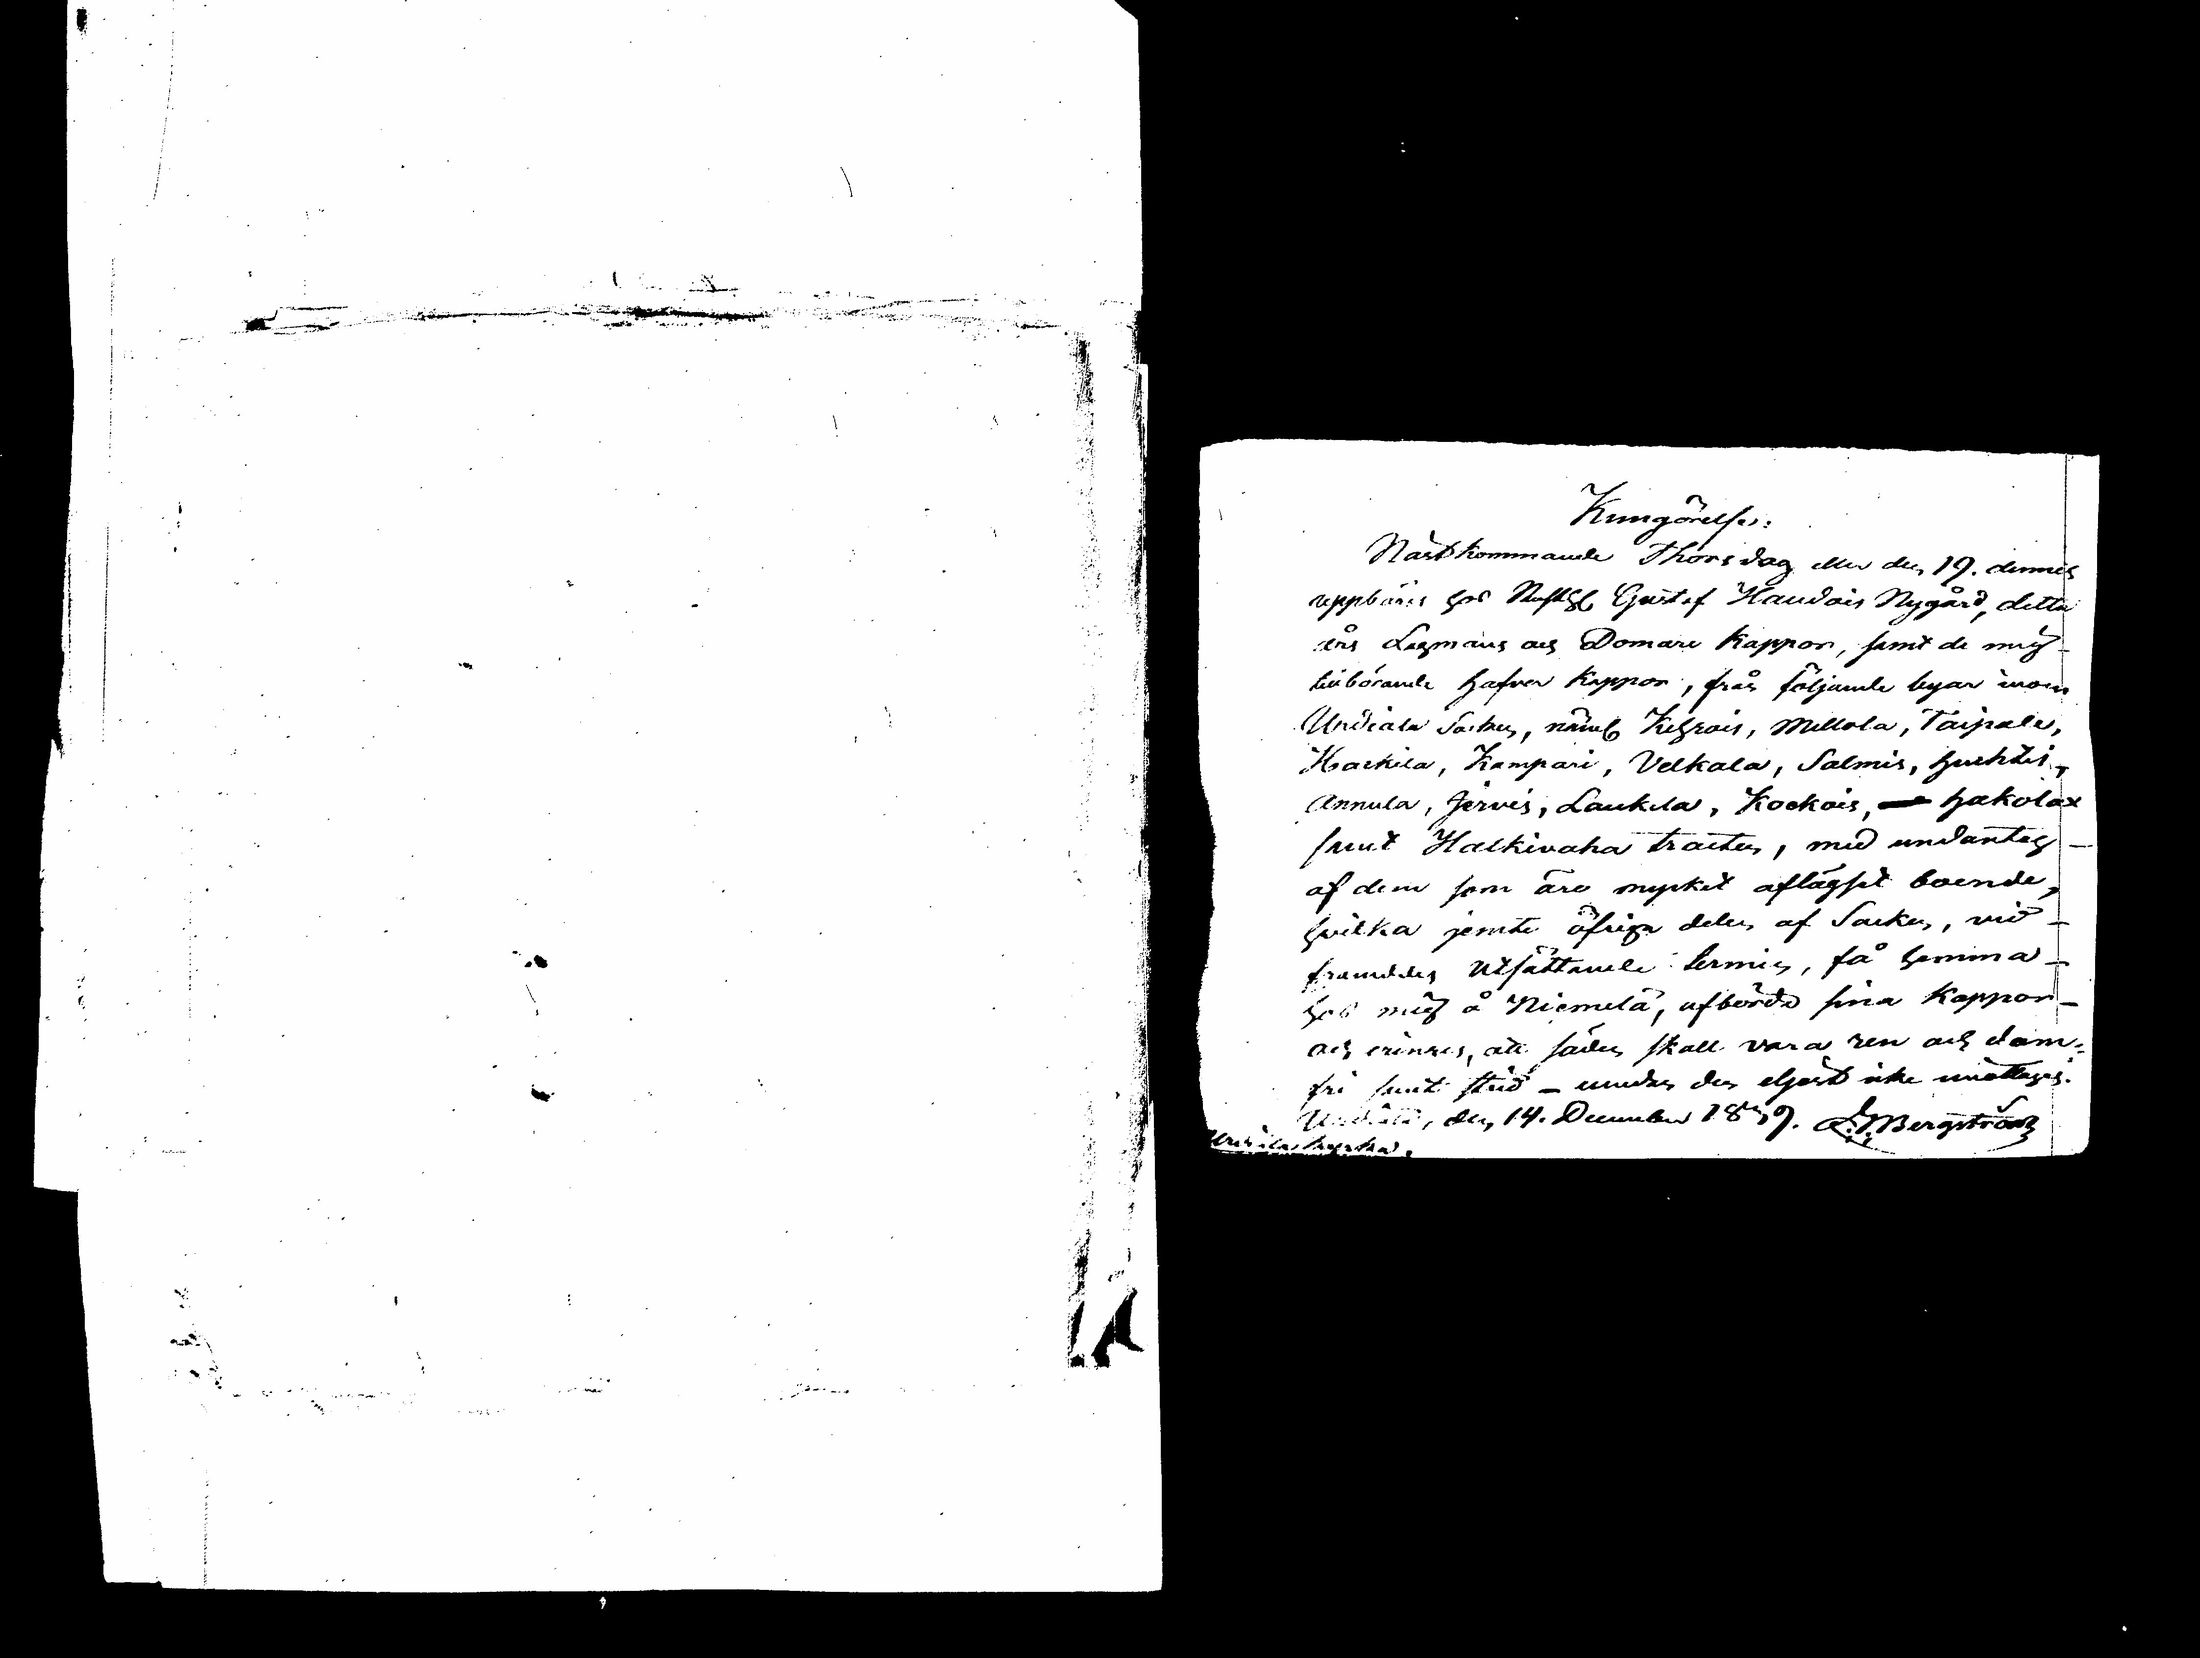 Kungörelse:
Nästkommande Thorsdag eller den 19. dennes
uppbäres hos Gustaf Haudois Nygård, detta
års Lagmans och Domare Kappor, samt de mig
tillhörande hafver Kappor, från följande byar inom
Urdiala Socken, näml Kehrois, Mellola, Taipale,
Hackila, Kampari, Velkala, Salmis, Huchtis,
Annula, Jervis, Laukela, Kockois, Hakolax
samt Halkivaha tracten, med undantag
af dem som äro mycket aflägset boende,
hvilka jemte öfriga delen af Socken, vid
framdeles utsättande termin, få hemma
hos mig å Niemelä, afbörda sina Kappor
och erinras, att säden skall vara ren och dam-
fri samt stöd - emedan den eljest icke emottages.
Urdiala, den 14. December 1839. Bergström
Urdiala kyrka.